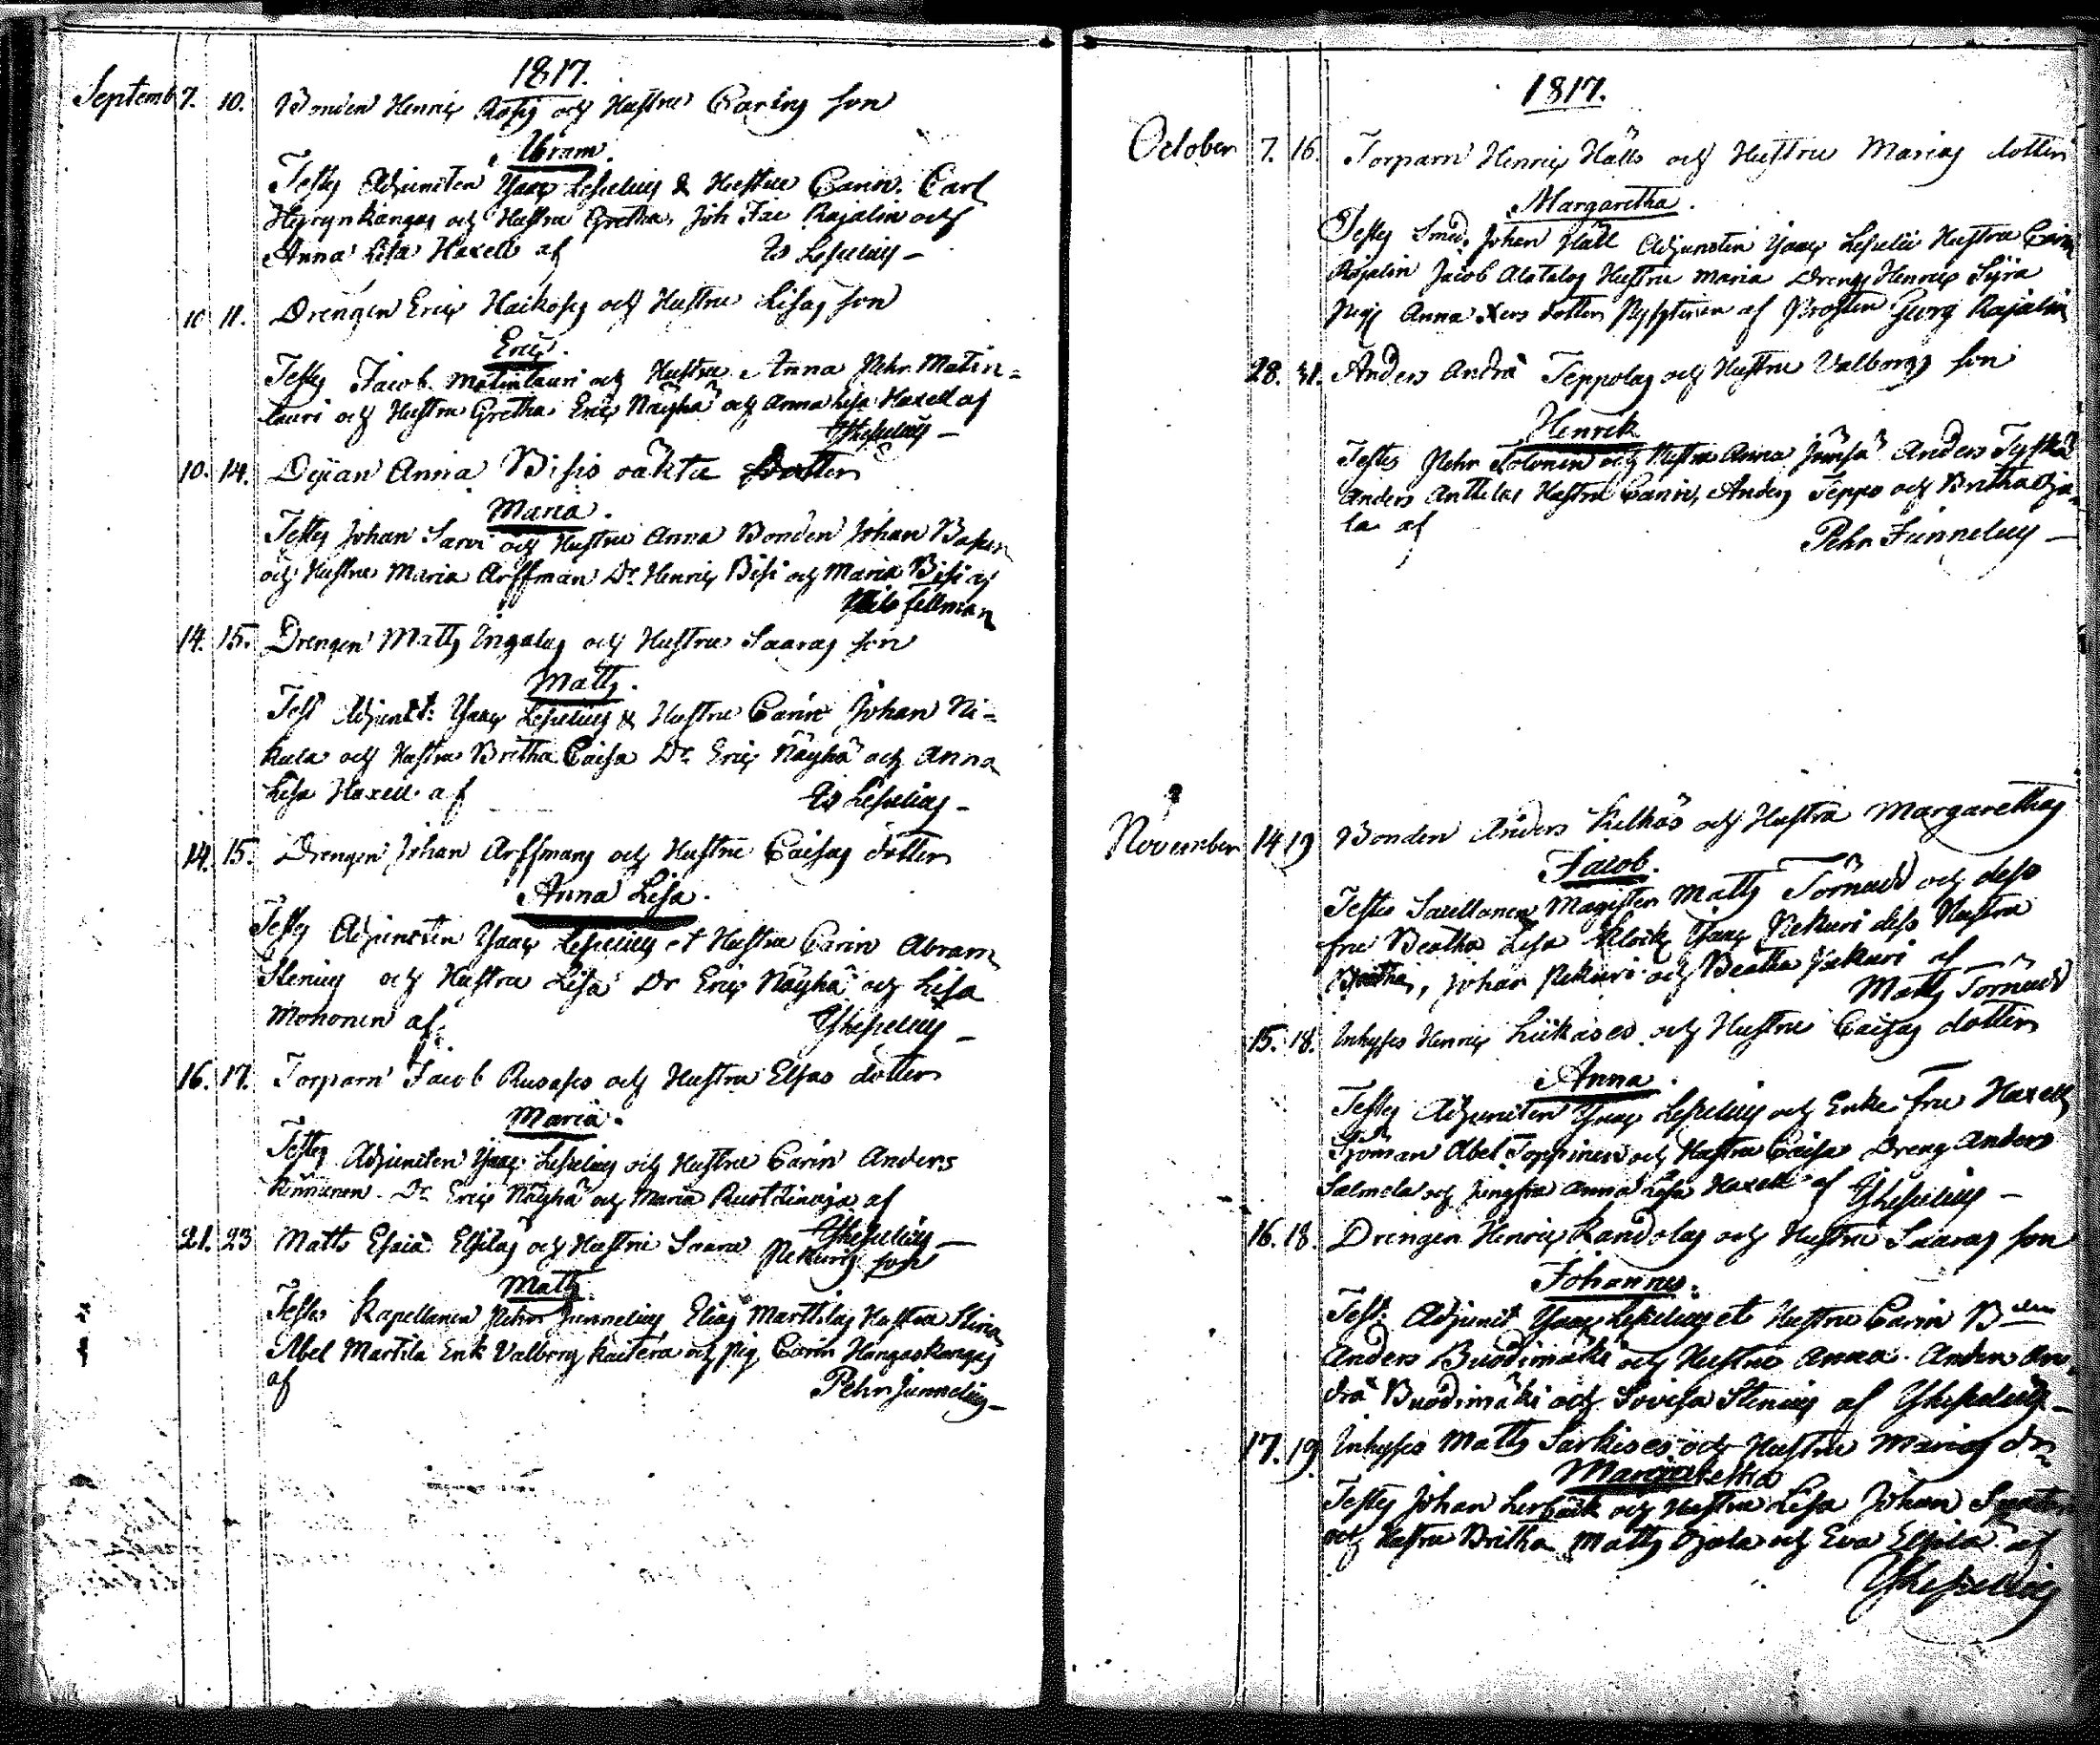 1817.
Septemb 7. 10. Bonden Henric och Hustru Carins son
Abram.
Testes Adjuncten Isaac & Hustru Carin. Carl
Hyrynkangas och Hustru Gretha, Joh Fac Rajalin och
Anna Lisa Haxell af
10 11. Drengen Eric och Hustru Lisas son
Eric.
Testes Jacob Matinlauri och Hustru Anna Pehr Matin-
lauri och Hustru Gretha Eric Näyhä och Anna Lisa Haxell af
10. 14. Anna Bisis oäkta Dotter
Maria.
Testes Johan Sarvi och Hustru Anna Bonden Johan
och Hustru Maria Arffman Dr Henric Bisi och Maria Bisi af
Nils Fellman
14. 15. Drengen Matts Ingalas och Hustru Saaras son
Matts.
Test Adjunct: Isaac & Hustru Carin Johan Ni-
kula och Hustru Britha Caisa Dr Eric Näyhä och Anna
Lisa Haxell af
14. 15. Drengen Johan Arffmans och Hustru Caisas dotter
Anna Lisa.
Testes Adjuncten Isaac et Hustru Carin Abram
Stenius och Hustru Lisa Dr Eric Näyhä och Lisa
Mononen af
16. 17. Torparn Jacob och Hustru Elsas dotter
Maria.
Testes Adjuncten Isaac och Hustru Carin Anders
Kinnunen Dr Eric Näyhä och Maria af
21. 23 Matts Esaia och Hustru Saara Pekuris son
Matts.
Testes Kapellanen Pehr Junnelius Elias Marttilas Hustru Stina
Abel Martila Enk Valborg och Pig Carin Hangaskangas
af Pehr Junnelius
1817.
October 7. 16. Torparn Henric Hälls och Hustru Marias dotter
Margaretha.
Testes Smed. Johan Häll Adjuncten Isaac Hustru Carin
Rajalin Jacob Alatalos Hustru Maria Dreng Henric Syra
Pig Anna dotter af Prosten Georg Rajalin
28. 31. Anders Andra Teppolas och Hustru Valborgs son
Henrik
Testes Pehr Tolonen och Hustru Anna Jämsä Anders
Anders Anttilas Hustru Carin, Anders Teppo och Britha Oja-
la af
Pehr Junnelius
November 14 19 Bonden Anders och Hustru Margarethas
Jacob.
Testes Sacellanen Magister Matts Törnudd och dess
fru Beatha Lisa Klock Isaac Pekuri dess Hustru
Britha, Johan Pekuri och Beatha Pekuri af
Matts Törnudd
15. 18. Inhyses Henric Liikases och Hustru Caisas dotter
Anna.
Testes Adjuncten Isaac och Enke fru Haxell
Sjöman Abel Toppinen och Hustru Caisa Dreng Anders
Salmela och Jungfru Anna Lisa Haxell af
16. 18. Drengen Henric Kandolas och Hustru Saaras son
Johannes.
Test: Adjunct Isaac et Hustru Carin Bden
Anders Buddimäki och Hustru Anna. Anders An-
drä Buddimäki och Lovisa Stenius af
17. 19. Inhyses Matts Sarkises och Hustru Marias dr
Margaretha
Testes Johan Lerbäck och Hustru Lisa Johan
och Hustru Britha Matts Ojala och Eva af